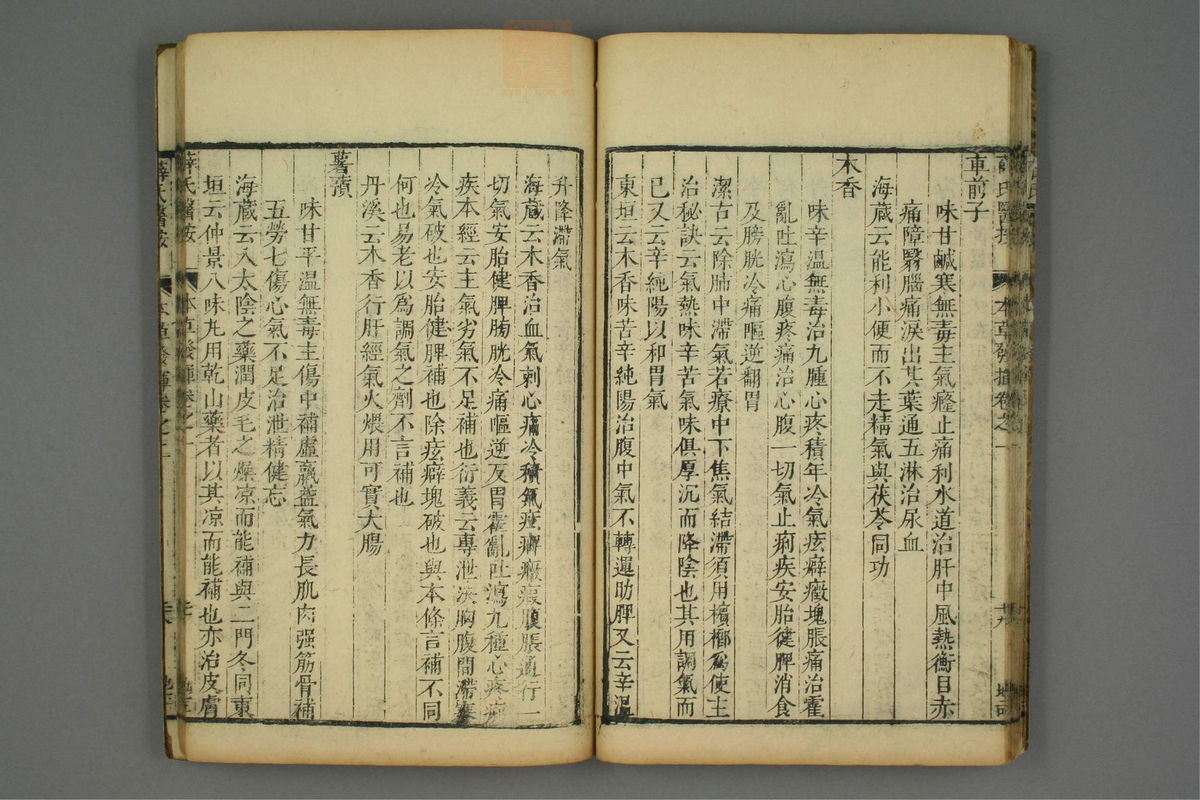 車前子
味甘鹹寒無毒主氣癃止痛利水道治肝中風熱衝目赤
痛障翳腦痛淚出其葉通五淋治尿血
海藏云能利小便而不走精氣與茯苓同功
木香
味辛溫無毒治九腫心疼積年冷氣痃癖癥塊脹痛治霍
亂吐瀉心腹疼痛治心腹一切氣止痢疾安胎健脾消食
及膀胱冷痛嘔逆翻胃
潔古云除肺中滯氣若療中下焦氣結滯須用檳榔爲使主
治秘訣云氣熱味辛苦氣味俱厚沉而降陰也其用調氣而
已又云辛純陽以和胃氣
東垣云木香味苦辛純陽治腹中氣不轉運助脾又云辛溫
升降滯氣
海藏云木香治血氣刺心痛冷積氣痃癖癥瘕腹脹通行一
切氣安胎健脾膀胱冷痛嘔逆反胃霍亂吐瀉九種心疼
疾本經云主氣劣氣不足補也衍義云專泄決胸腹間滯塞
冷氣破也安胎健脾補也除痃癖塊破也與本條言補不同
何也易老以爲調氣之劑不言補也
丹溪云木香行肝經氣火煨用可實大腸
薯蕷
味甘平溫無毒主傷中補虛羸益氣力長肌肉强筋骨補
五勞七傷心氣不足治泄精健忘
海藏云入太陰之藥潤皮毛之燥凉而能補與二門冬同東
垣云仲景八味丸用乾山藥者以其凉而能補也亦治皮膚
薛氏醫按 本草發揮卷之一